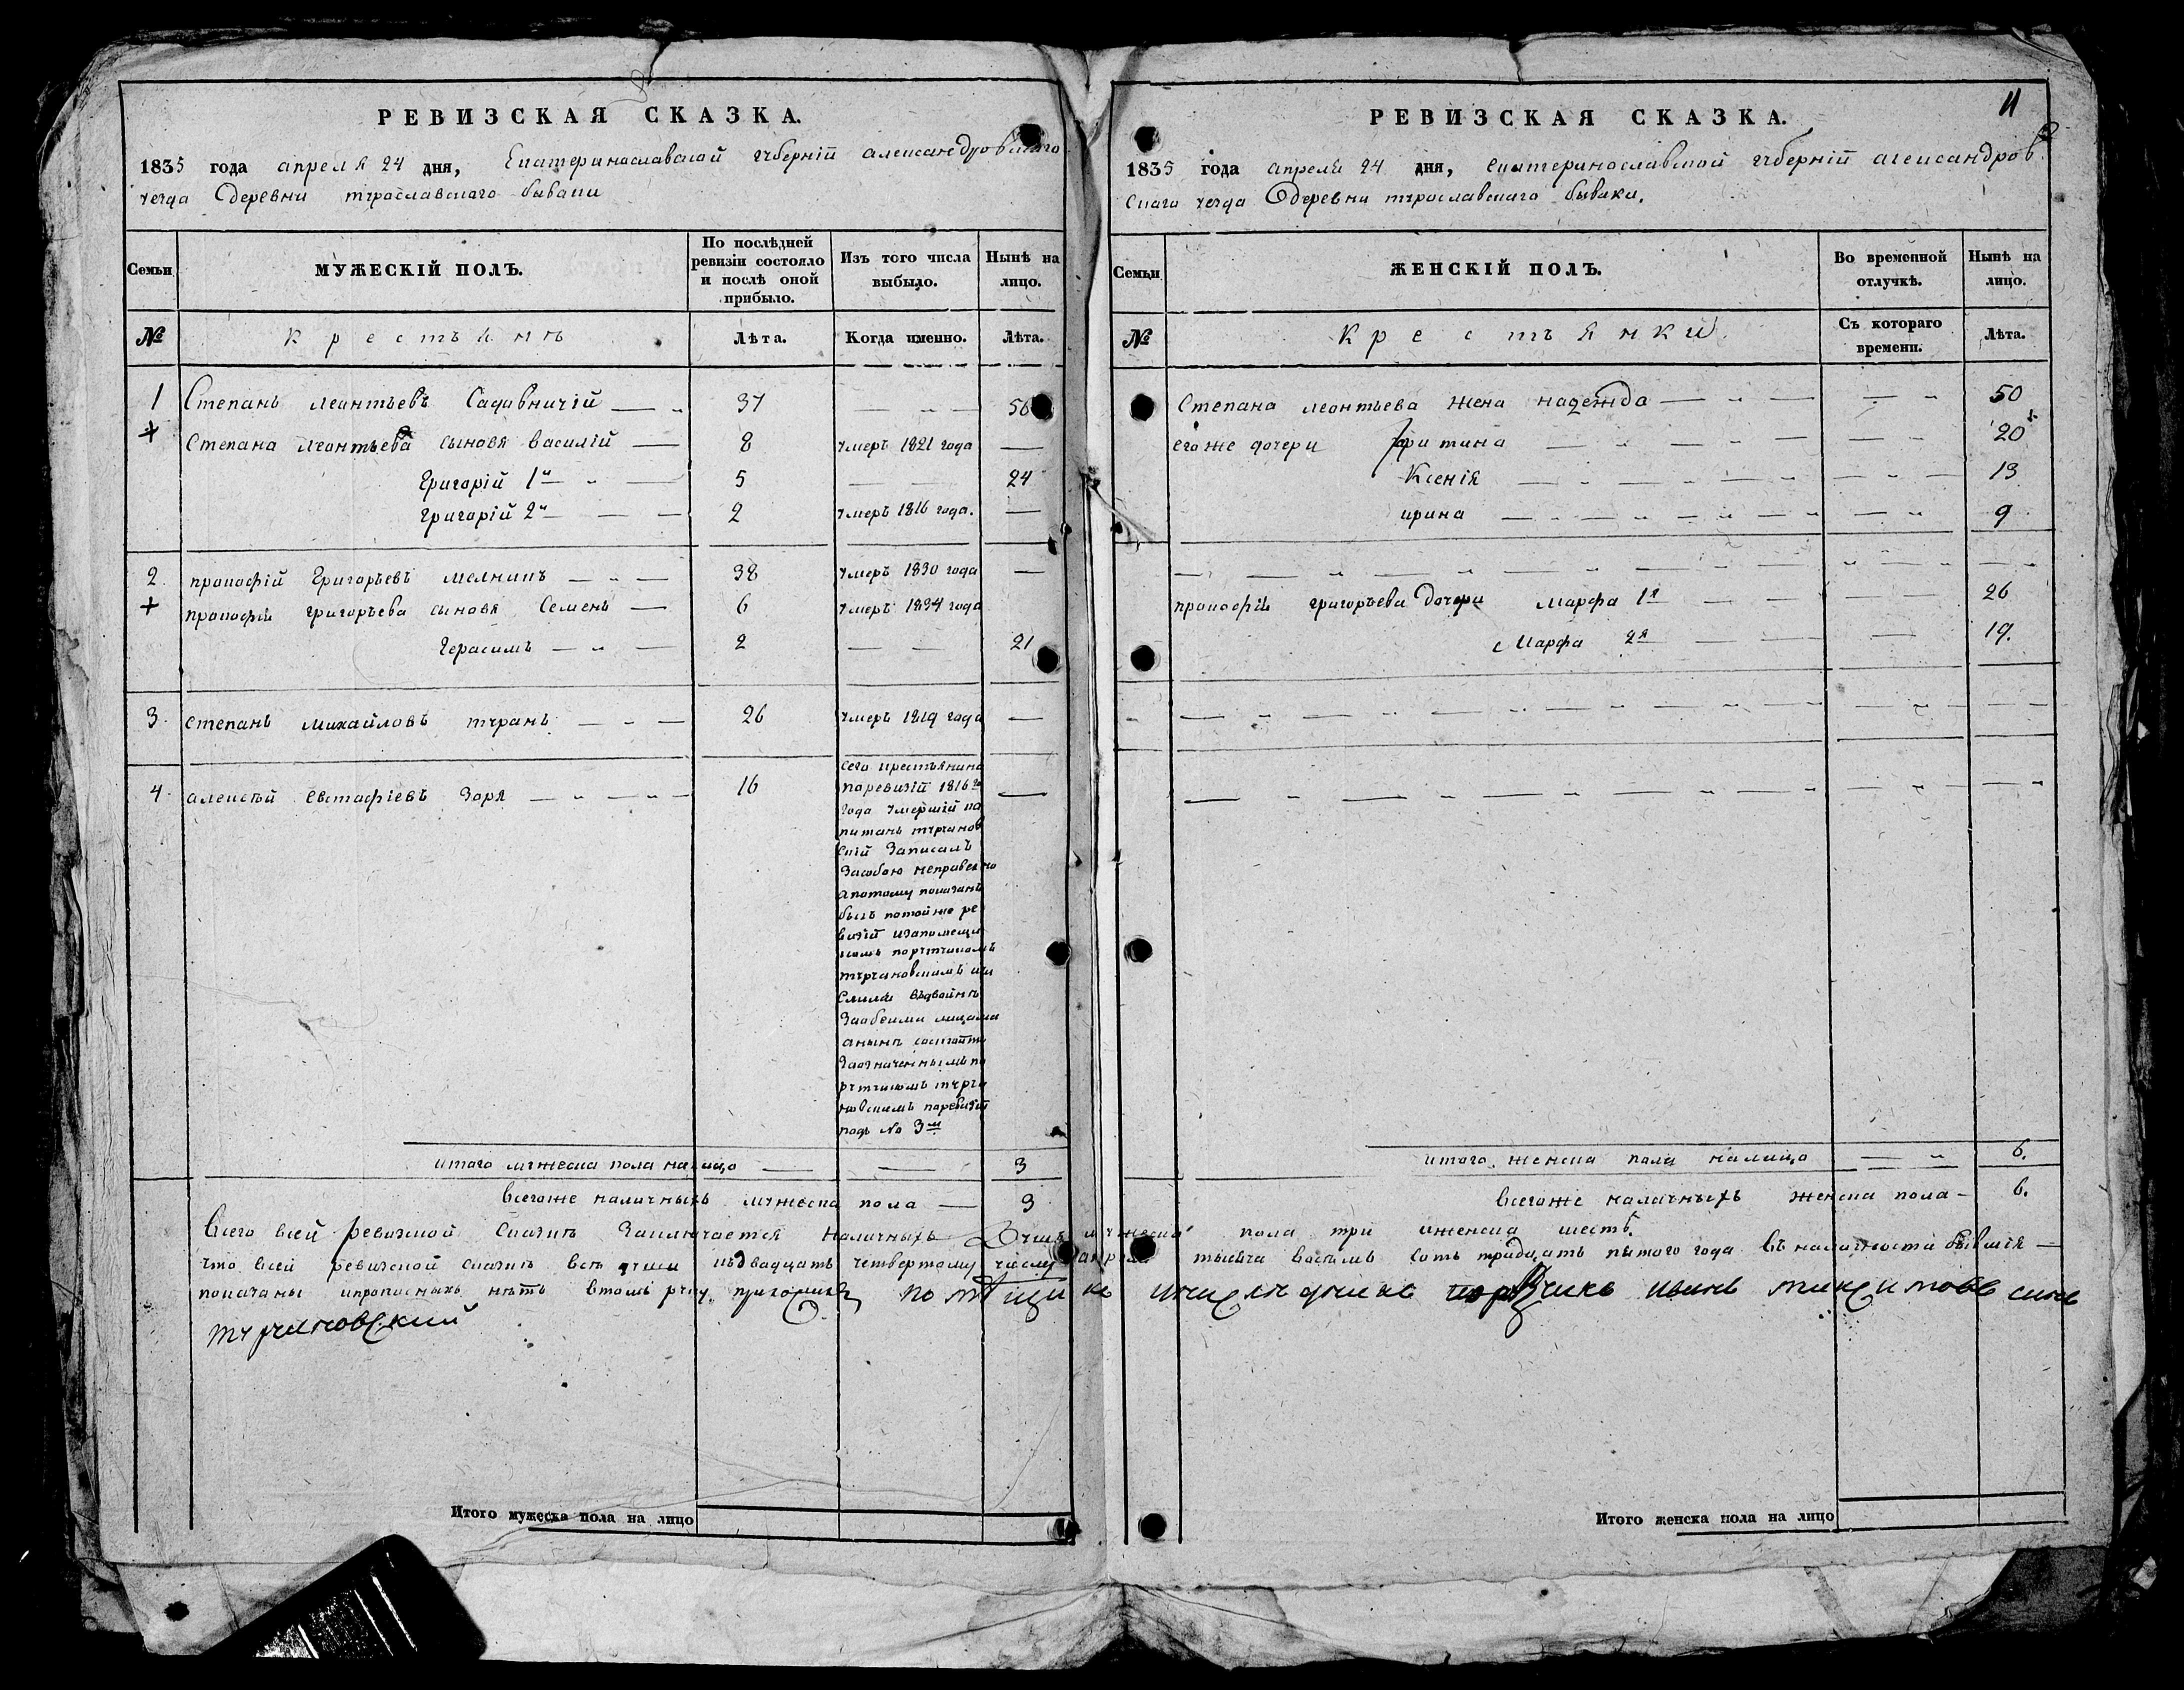 РЕВИЗСКАЯ СКАЗКА.
1835 года апреля 24 дня, Екатеринославской губерніи александровскаго
уезда Деревни тураславскаго бываки
Семьи МУЖЕСКІЙ ПОЛЪ. По послѣдней ревизіи состояло и послѣ оной прибыло. Изъ того числа выбыло. Нынѣ на лицо.
№ Крестьянъ Лѣта. Когда именно. Лѣта.
1 Степанъ леонтьевъ Садавничій 37 50
Степана леонтьева сыновя василій 8 умеръ 1821 года
Григорій 1й 5 24
Григорій 2й 2 умеръ 1816 года.
2 прокофій Григорьевъ мелникъ 38 умеръ 1830 года
прокофія григорьева сыновя Семенъ 6 умеръ 1834 года
Герасимъ 2 21
3. степанъ михайловъ туранъ 26 умеръ 1819 года
4. алексѣй евстафіевъ Заря 16
сего крестьянина
поревизій 1816го
года умершій ка
питанъ турчанов
скій Записалъ
Засобою неправелно
апотому показанъ
былъ потойже ре
визій изапомещи
комъ поручикомъ
турчановскимъ
вдвойнѣ
Заобеими лицами
анынѣ состоитъ
Заозначеннымъ по
ручикомъ турча
новскимъ поревизій
подъ № 3м
итого мужеска пола налицо 3
всегоже наличныхъ мужеска пола 3
РЕВИЗСКАЯ СКАЗКА.
11
1835 года апреля 24 дня, екатеринославской губерніи александров
скаго уезда Деревни тураславскаго бываки.
Семьи ЖЕНСКІЙ ПОЛЪ. Во временной отлучкѣ. Нынѣ на лицо.
№ Крестьянки Съ котораго времени. Лѣта.
Степана леонтьева жена надежда 50
егоже дочери 20
Ксенія 13
ирина 9
прокофія григорьева Дочери Марфа 1я 26
Марфа 2я 19.
итого женска пола налицо 6.
всегоже наличныхъ женска пола 6.
Всего всей ревизкой сказкѣ Заключается Наличныхъ Душъ мужеска пола три иженска шесть
что всей ревизской сказкѣ все души къдвадцать четвертому числу апреля тысяча восемъ сотъ тридцать пятого года въ наличности бывшія
показаны ипрописныхъ нѣтъ втомъ руку помѣщикъ поручикъ иванъ максимовъ синъ
турчановский
Итого мужеска пола на лицо
Итого женска пола на лицо